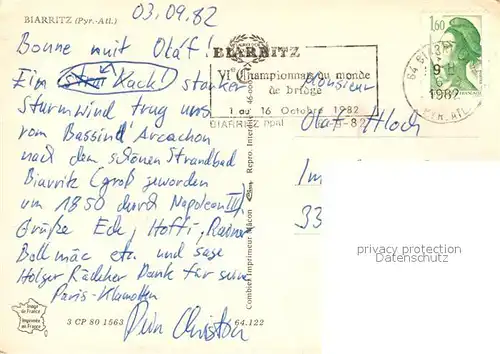 BIARRITZ (Pyr.-Atl.)
03.09.82
Bonne nuit Olaf!
Ein Kack! starker
Sturmwind trug uns
vom Bassin d'Arcachon
nach dem schönen Strandbad
Biarritz (groß geworden
um 1850 durch Napoleon III)
Grüße Ecki, Hoffi, Rainer
Bollmäc etc. und sage
Holger Rädcker Dank für seine
Paris-Klamotten
Dein Christian
BIARRITZ
VIe Championnats du monde
de bridge
1 au 16 Octobre 1982
BIARRITZ ppal
1,60
64 BIARRITZ
9
1982
PYR. ATL.
Monsieur
Olaf Hloch
Im
33
privacy protection
privacy protection
Combier Imprimeur Mâcon
Repro. Interdite
Image de France
Imprimée en France
3 CP 80 1563
64.122